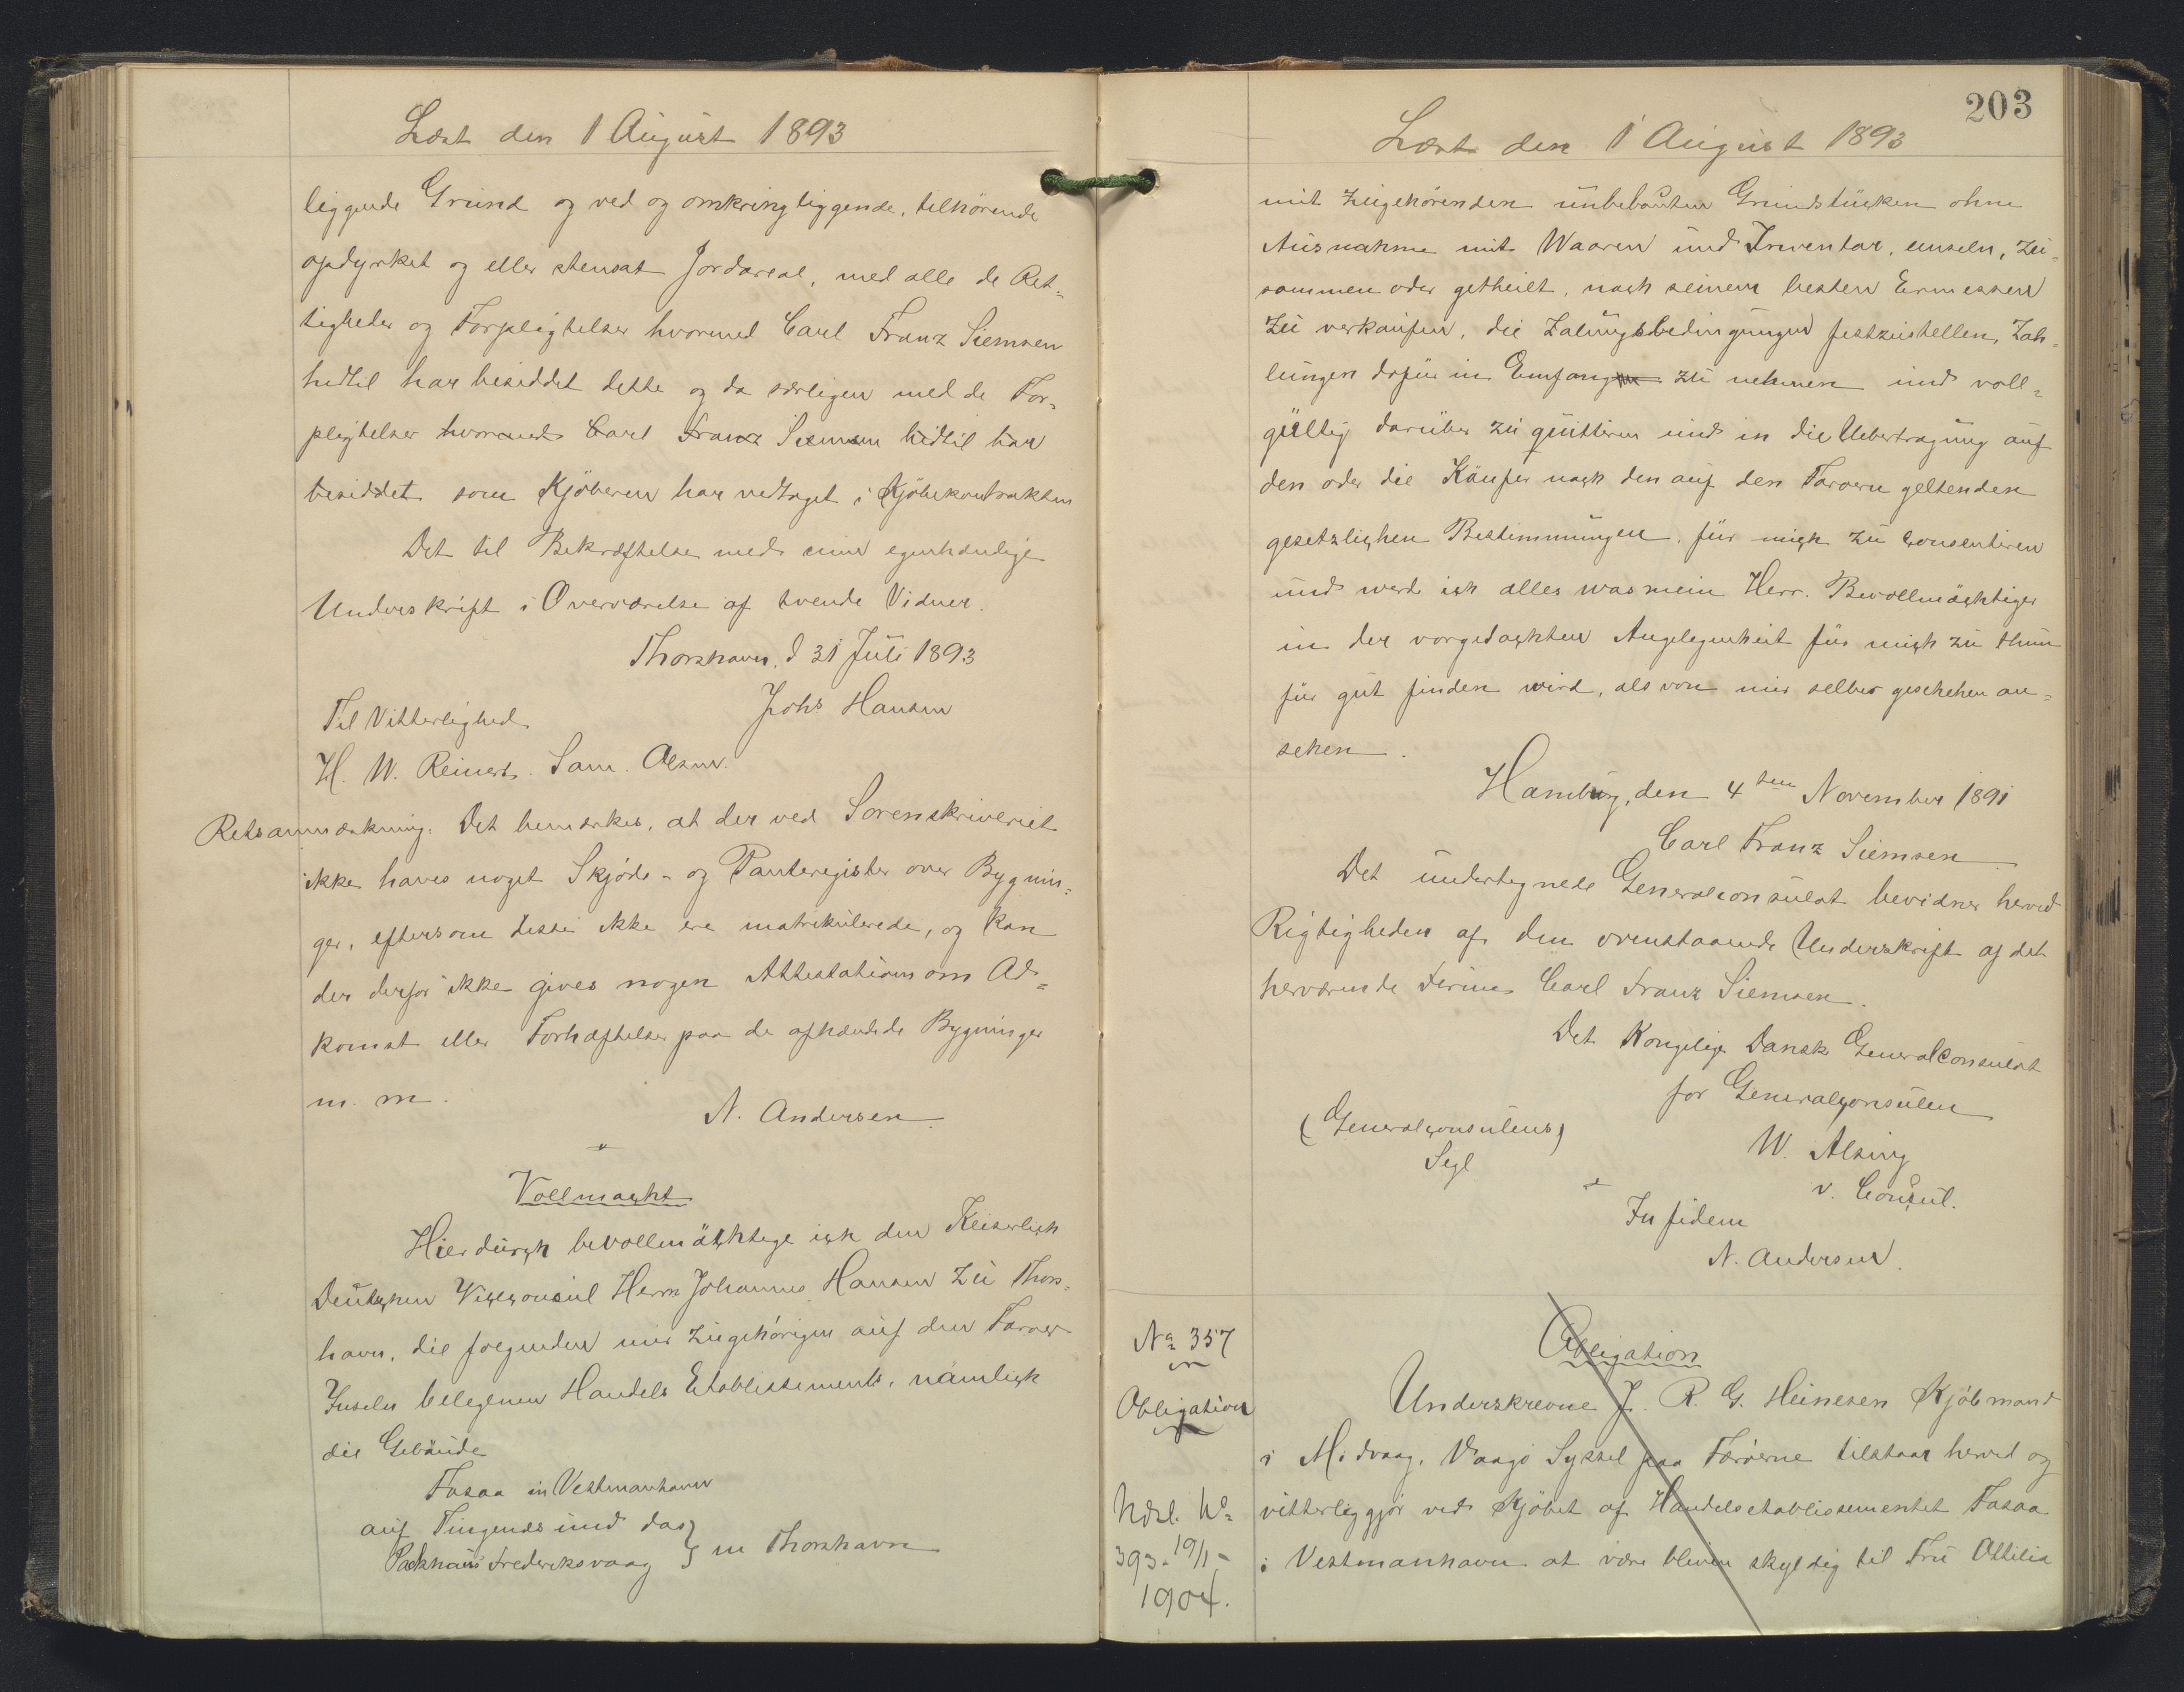 Læst den 1 August 1893
liggende Grund og ved og omkring liggende, tilhörende
opdyrket og eller stensat Jordareal, med alle de Ret=
tigheder og Forpligtelser hvormed Carl Franz Siemsen
hidtil har besiddet dette og da særligen med de For=
pligtelser hvormed Carl Franz Siemsen hidtil har
besiddet som Kjöberen har vedtaget i Kjöbekontrakten
Det til Bekræftelse med min egenhændige
Underskrift i Overværelse af tvende Vidner.
Thorshavn, d 31 Juli 1893
Johs Hansen
Til Vitterlighed
H. W. Reinert. Sam. Olsen.
Retsanmærkning: Det bemærkes, at der ved Sorenskriveriet
ikke haves noget Skjöde- og Panteregister over Bygnin=
ger, eftersom disse ikke ere matrikulerede, og kan
der derfor ikke gives nogen Attestation om Ad=
komst eller Forhæftelser paa de afhændede Bygninger
m. m.
N. Andersen.
Vollmacht
Hierdurch bevollmächtige ich den Keiserlich
Deutschen Viceconsul Herrn Johannes Hansen zu Thors=
havn, die folgenden mir zugehörigen auf den Faroer
Inseln belegenen Handels Etablissements, nämlich
die Gebäude
Fasaa in Vestmanhavn
auf Tingenes und das
Packhaus Frederiksvaag } in Thorshavn
203
Læst den 1 August 1893
mit zugehörenden unbebauten Grundstücken ohne
Ausnahme mit Waaren und Inventar, einseln, zu=
sammen oder getheilt, nach seinem besten Ermessen
zu verkaufen, die Zalungsbedingungen festzustellen, Zah=
lungen dafür in Emfang zu nehmen und voll=
gültig darüber zu quittiren und in die Uebertragung auf
den oder die Käufer nach den auf den Faroern geltenden
gesetzlichen Bestimmungen, für mich zu consentiren
und werd ich alles was mein Herr. Bevollmächtiger
in der vorgedachten Angelegenheit für mich zu thun
für gut finden wird, als von mir selber geschehen an=
sehen.
Hamburg, den 4ten November 1891
Carl Franz Siemsen
Det undertegnede Generalconsulat bevidner herved
Rigtigheden af den ovenstaaende Underskrift af det
herværende Firma Carl Franz Siemsen.
Det Kongelige Danske Generalconsulat
for Generalconsulen
(Generalconsulens)
Segl
W. Alsing
v. Consul.
In fidem
N. Andersen.
No 357
Obligation
Ndsl. No
393 - 19/1 -
1904.
Obligation
Underskrevne J. R. G. Heinesen Kjöbmand
i Midvaag, Vaagö Syssel paa Færöerne tilstaar herved og
vitterliggjör ved Kjöbet af Handelsetablissementet Fasaa
i Vestmanhavn at være bleven skyldig til Fru Ottilia